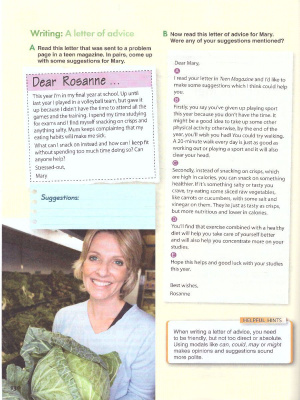 Writing: A letter of advice
A Read this letter that was sent to a problem
page in a teen magazine. In pairs, come up
with some suggestions for Mary.
Dear Rosanne ...
This year I'm in my final year at school. Up until
last year I played in a volleyball team, but gave it
up because I didn't have the time to attend all the
games and the training. I spend my time studying
for exams and I find myself snacking on crisps and
anything salty. Mum keeps complaining that my
eating habits will make me sick.
What can I snack on instead and how can I keep fit
without spending too much time doing so? Can
anyone help?
Stressed-out,
Mary
Suggestions:
B Now read this letter of advice for Mary.
Were any of your suggestions mentioned?
Dear Mary,
A
I read your letter in Teen Magazine and I'd like to
make some suggestions which I think could help
you.
B
Firstly, you say you've given up playing sport
this year because you don't have the time. It
might be a good idea to take up some other
physical activity otherwise, by the end of the
year, you'll wish you had! You could try walking.
A 20-minute walk every day is just as good as
working out or playing a sport and it will also
clear your head.
C
Secondly, instead of snacking on crisps, which
are high in calories, you can snack on something
healthier. If it's something salty or tasty you
crave, try eating some sliced raw vegetables,
like carrots or cucumbers, with some salt and
vinegar on them. They're just as tasty as crisps,
but more nutritious and lower in calories.
D
You'll find that exercise combined with a healthy
diet will help you take care of yourself better
and will also help you concentrate more on your
studies.
E
Hope this helps and good luck with your studies
this year.
Best wishes,
Rosanne
HELPFUL HINTS
When writing a letter of advice, you need
to be friendly, but not too direct or absolute.
Using modals like can, could, may or might
makes opinions and suggestions sound
more polite.